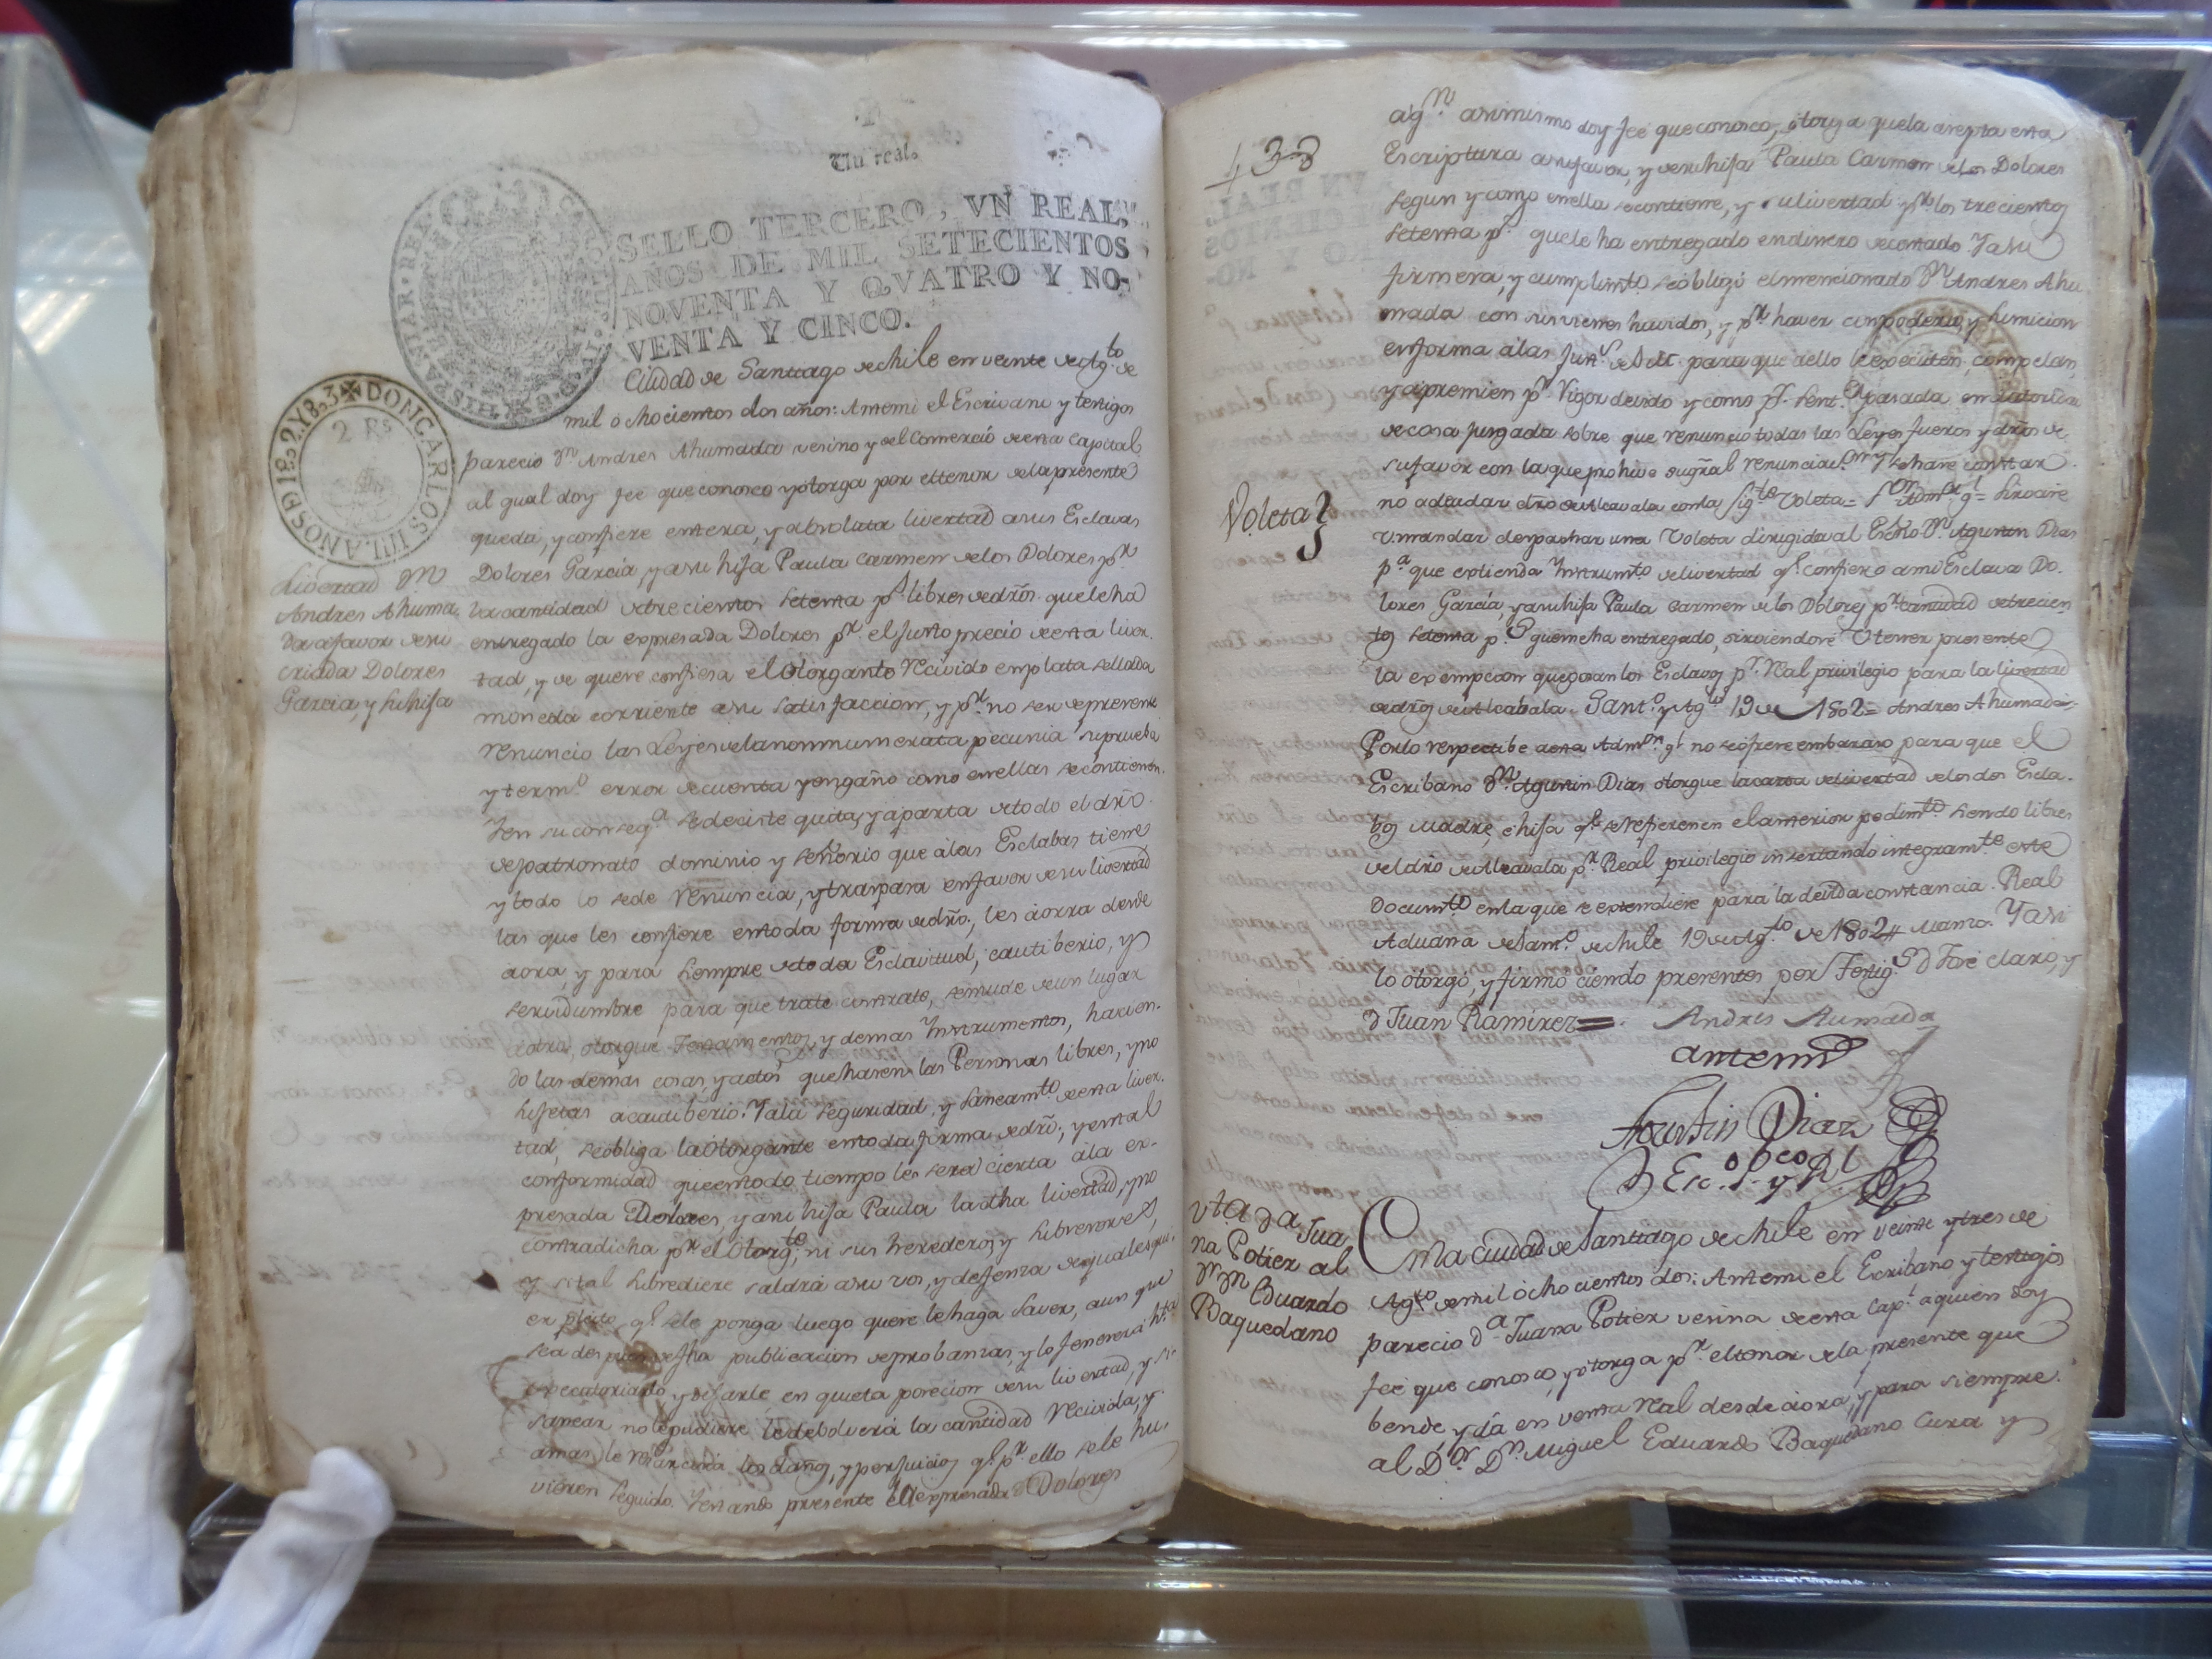 Un real.
SELLO TERCERO, VN REAL,
AÑOS DE MIL SETECIENTOS
NOVENTA Y QVATRO Y NO-
VENTA Y CINCO.
HISPANIAR·REX
DON CARLOS IIII. AÑOS D 1802.Y 803
2 Rs
Livertad Dn
Andres Ahuma
da afavor de su
criada Dolores
Garcia, y su hija
Ciudad de Santiago de chile en veinte de Agto de
mil ochocientos dos años: Antemi el Escrivano y testigos
parecio Dn Andres Ahumada vesino y del Comercio de esta Capital
al qual doy fee que conosco y otorga por el tenor de la presente
que da, y confiere entera, y absoluta livertad a sus Esclavas
Dolores Garcia, y a su hija Paula Carmen de los Dolores pr
la cantidad de trecientos setenta ps libres de dros. que le ha
entregado la expresada Dolores pr el justo precio de esta liver
tad, y de que se confiesa el Otorgante recivido en plata sellada
moneda corriente a su satisfaccion, y pr no ser de presente
renuncio las Leyes de la non numerata pecunia su prueba
y termo error de cuenta y engaño como en ellas se contienen.
Y en su conseqa se deciste quita, y aparta de todo el dro
de patronato dominio y señorio que a las Esclabas tiene
y todo lo sede renuncia, y traspasa en favor de su livertad
las que les confiere en toda forma de dro; les aorra desde
aora, y para siempre de toda Esclavitud, cautiberio, y
servidumbre para que trate contrate, se mude de un lugar
a otro, otorgue Testamentos, y demas Instrumentos, hacien-
do las demas cosas, y actos que hasen las Personas libres, y no
sujetas a cautiberio. Y a la seguridad, y saneamto de esta liver-
tad, se obliga la Otorgante en toda forma de dro; y en tal
conformidad que en todo tiempo les sera cierta a la ex-
presada Dolores, y a su hija Paula la dha livertad, y no
contradicha pr el Otorgte, ni sus herederos, y subsesores,
y si tal subsediere saldrá a su vos, y defensa de qualesqui-
er pleito, q. se le ponga luego que se le haga saver, aun que
sea despues de fha publicacion de probansas, y lo fenecerá hta
executoriado, y dejarle en quieta posecion de su livertad, y si
sanear no le pudiere le debolverá la cantidad recivida, y
a mas le resarcirá los daños, y perjuicios q. pr ello se le hu-
vieren seguido. Y estando presente la expresada Dolores
438
a qn asimismo doy fee que conosco, otorga que la asepta esta
Escriptura a su favor, y de su hija Paula Carmen de los Dolores
segun y como en ella se contiene, y su livertad pr los trecientos
setenta ps que le ha entregado en dinero de contado. Y a su
firmesa, y cumplimto se obligó el mencionado Dn Andres Ahu
mada con sus vienes havidos, y pr haver con poderio, y sumicion
en forma a las Justs de S.M. para que a ello le executen, compelan,
y apremien pr vigor devido y como pr sent. pasada en autoridad
de cosa jusgada sobre que renuncio todas las Leyes fueros y dros de
su favor con la que prohive su gral renunciacn Y se hase constar
Voleta
no adeudar dro de Alcavala con la sigte Voleta = Sor Admor gl = Sirvase
V. mandar despachar una Voleta dirigida al Escno Dn Agustin Dias
pa que extienda Instrumto de livertad q. confiero a mi Esclava Do-
lores Garcia, y a su hija Paula Carmen de los Dolores pr cantidad de trecien-
tos setenta ps que me ha entregado, sirviendose V tener presente
la exempcion que gosan los Esclavos pr Real privilegio para la livertad
de dros de Alcabala. Santo y Agto 19 de 1802 = Andres Ahumada =
Por lo respectibe a esta Admon gl no se ofrece embaraso para que el
Escribano Dn Agustin Dias otorgue la carta de livertad de los dos Escla-
bos Madre, e hija qe se refieren en el anterior pedimto siendo libres
del dro de Alcavala pr Real privilegio insertando integramte este
Documto en la que se extendiere para la devida constancia. Real
Aduana de Santo de chile 19 de Agto de 1802 Manso. Y asi
lo otorgó, y firmó siendo presentes por Testigs Dn José Claro, y
Dn Juan Ramirez =
Andres Aumada
antemi
Agustin Diaz
Esno Pco y Rl
Vta Da Jua
na Potier al
Dr Dn Eduardo
Baquedano
En la ciudad de Santiago de chile en veinte y tres de
Agto de mil ochocientos dos: Antemi el Escribano y testigos
parecio Da Juana Potier vesina de esta Capl a quien doy
fee que conosco, y otorga pr el tenor de la presente que
bende, y da en venta Real desde aora, y para siempre
al Dor Dn Miguel Eduardo Baquedano Cura y